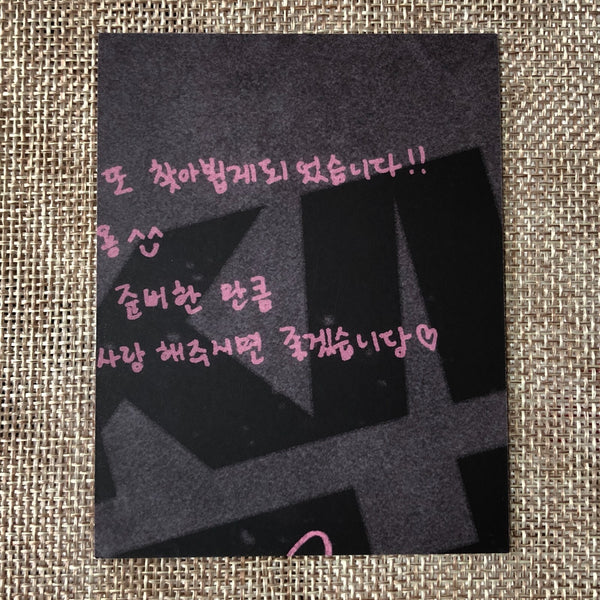 또 찾아뵙게되었습니다!!
용 ^^
준비한 만큼
사랑 해주시면 좋겠습니당♡